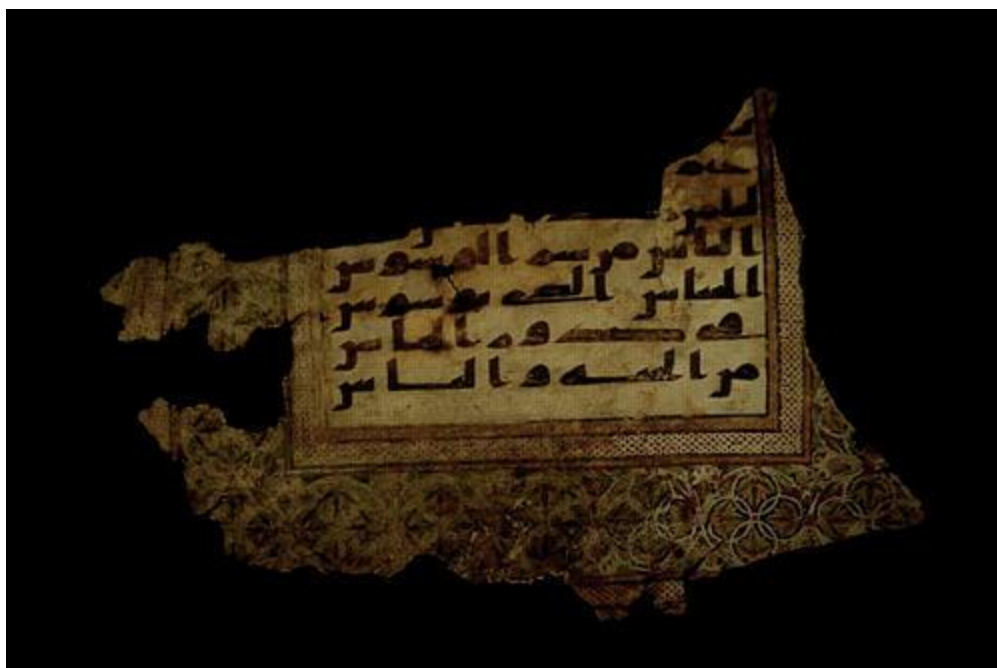 حيم
لناس
الناس من شر الوسوس
الخناس الذى يوسوس
فى صدور الناس
من الجنة والناس